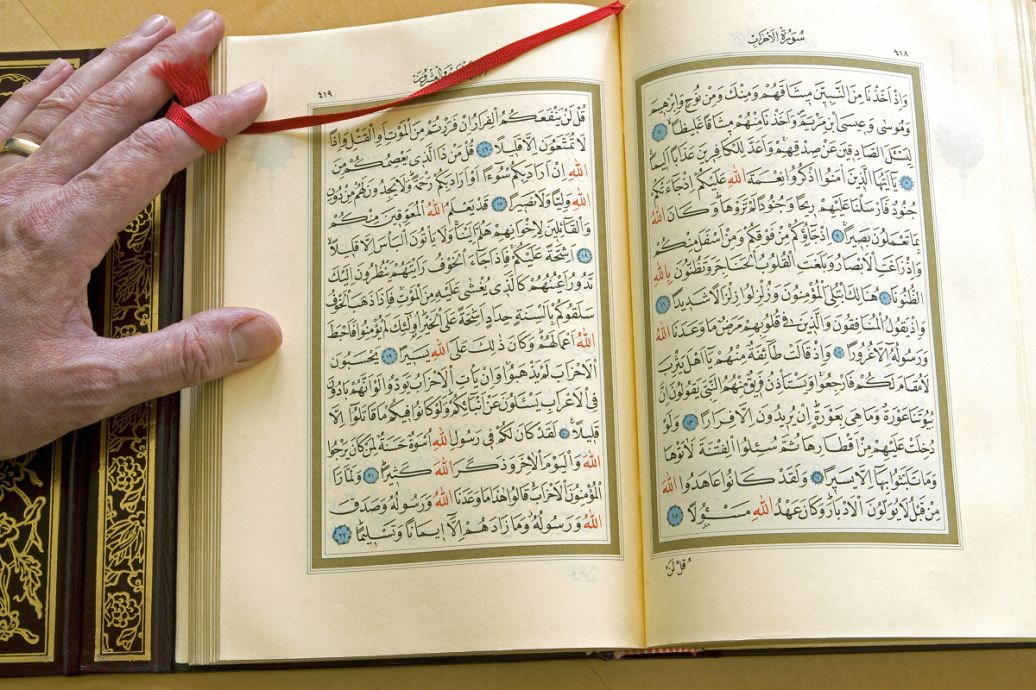 سُورَةُ الْاَحْزَابِ
٤١٨
وَاِذْ اَخَذْنَا مِنَ النَّبِيّٖنَ مٖيثَاقَهُمْ وَمِنْكَ وَمِنْ نُوحٍ وَاِبْرٰهٖيمَ
وَمُوسٰى وَعٖيسَى ابْنِ مَرْيَمَ وَاَخَذْنَا مِنْهُمْ مٖيثَاقًا غَلٖيظًا ٧
لِيَسْـَٔلَ الصَّادِقٖينَ عَنْ صِدْقِهِمْ وَاَعَدَّ لِلْكَافِرٖينَ عَذَابًا اَلٖيمًا
٨ يَٓا اَيُّهَا الَّذٖينَ اٰمَنُوا اذْكُرُوا نِعْمَةَ اللّٰهِ عَلَيْكُمْ اِذْ جَٓاءَتْكُمْ
جُنُودٌ فَاَرْسَلْنَا عَلَيْهِمْ رٖيحًا وَجُنُودًا لَمْ تَرَوْهَا وَكَانَ اللّٰهُ
بِمَا تَعْمَلُونَ بَصٖيرًا ٩ اِذْ جَٓاؤُكُمْ مِنْ فَوْقِكُمْ وَمِنْ اَسْفَلَ مِنْكُمْ
وَاِذْ زَاغَتِ الْاَبْصَارُ وَبَلَغَتِ الْقُلُوبُ الْحَنَاجِرَ وَتَظُنُّونَ بِاللّٰهِ
الظُّنُونَا ١٠ هُنَالِكَ ابْتُلِيَ الْمُؤْمِنُونَ وَزُلْزِلُوا زِلْزَالًا شَدٖيدًا ١١
وَاِذْ يَقُولُ الْمُنَافِقُونَ وَالَّذٖينَ فٖي قُلُوبِهِمْ مَرَضٌ مَا وَعَدَنَا اللّٰهُ
وَرَسُولُهُٓ اِلَّا غُرُورًا ١٢ وَاِذْ قَالَتْ طَٓائِفَةٌ مِنْهُمْ يَٓا اَهْلَ يَثْرِبَ
لَا مُقَامَ لَكُمْ فَارْجِعُوا وَيَسْتَأْذِنُ فَرٖيقٌ مِنْهُمُ النَّبِيَّ يَقُولُونَ اِنَّ
بُيُوتَنَا عَوْرَةٌ وَمَا هِيَ بِعَوْرَةٍ اِنْ يُرٖيدُونَ اِلَّا فِرَارًا ١٣ وَلَوْ
دُخِلَتْ عَلَيْهِمْ مِنْ اَقْطَارِهَا ثُمَّ سُئِلُوا الْفِتْنَةَ لَاٰتَوْهَا
وَمَا تَلَبَّثُوا بِهَٓا اِلَّا يَسٖيرًا ١٤ وَلَقَدْ كَانُوا عَاهَدُوا اللّٰهَ
مِنْ قَبْلُ لَا يُوَلُّونَ الْاَدْبَارَ وَكَانَ عَهْدُ اللّٰهِ مَسْؤُلًا ١٥
قُلْ لَنْ
٤١٩
قُلْ لَنْ يَنْفَعَكُمُ الْفِرَارُ اِنْ فَرَرْتُمْ مِنَ الْمَوْتِ اَوِ الْقَتْلِ وَاِذًا
لَا تُمَتَّعُونَ اِلَّا قَلٖيلًا ١٦ قُلْ مَنْ ذَا الَّذٖي يَعْصِمُكُمْ مِنَ
اللّٰهِ اِنْ اَرَادَ بِكُمْ سُٓوءًا اَوْ اَرَادَ بِكُمْ رَحْمَةً وَلَا يَجِدُونَ لَهُمْ مِنْ دُونِ
اللّٰهِ وَلِيًّا وَلَا نَصٖيرًا ١٧ قَدْ يَعْلَمُ اللّٰهُ الْمُعَوِّقٖينَ مِنْكُمْ
وَالْقَٓائِلٖينَ لِاِخْوَانِهِمْ هَلُمَّ اِلَيْنَا وَلَا يَأْتُونَ الْبَأْسَ اِلَّا قَلٖيلًا
١٨ اَشِحَّةً عَلَيْكُمْ فَاِذَا جَٓاءَ الْخَوْفُ رَاَيْتَهُمْ يَنْظُرُونَ اِلَيْكَ
تَدُورُ اَعْيُنُهُمْ كَالَّذٖي يُغْشٰى عَلَيْهِ مِنَ الْمَوْتِ فَاِذَا ذَهَبَ الْخَوْفُ
سَلَقُوكُمْ بِاَلْسِنَةٍ حِدَادٍ اَشِحَّةً عَلَى الْخَيْرِ اُو۬لٰٓئِكَ لَمْ يُؤْمِنُوا فَاَحْبَطَ
اللّٰهُ اَعْمَالَهُمْ وَكَانَ ذٰلِكَ عَلَى اللّٰهِ يَسٖيرًا ١٩ يَحْسَبُونَ
الْاَحْزَابَ لَمْ يَذْهَبُوا وَاِنْ يَأْتِ الْاَحْزَابُ يَوَدُّوا لَوْ اَنَّهُمْ بَادُونَ
فِي الْاَعْرَابِ يَسْـَٔلُونَ عَنْ اَنْبَٓائِكُمْ وَلَوْ كَانُوا فٖيكُمْ مَا قَاتَلُٓوا اِلَّا
قَلٖيلًا ٢٠ لَقَدْ كَانَ لَكُمْ فٖي رَسُولِ اللّٰهِ اُسْوَةٌ حَسَنَةٌ لِمَنْ كَانَ يَرْجُوا
اللّٰهَ وَالْيَوْمَ الْاٰخِرَ وَذَكَرَ اللّٰهَ كَثٖيرًا ٢١ وَلَمَّا رَاَ
الْمُؤْمِنُونَ الْاَحْزَابَ قَالُوا هٰذَا مَا وَعَدَنَا اللّٰهُ وَرَسُولُهُ وَصَدَقَ
اللّٰهُ وَرَسُولُهُ وَمَا زَادَهُمْ اِلَّٓا اٖيمَانًا وَتَسْلٖيمًا ٢٢